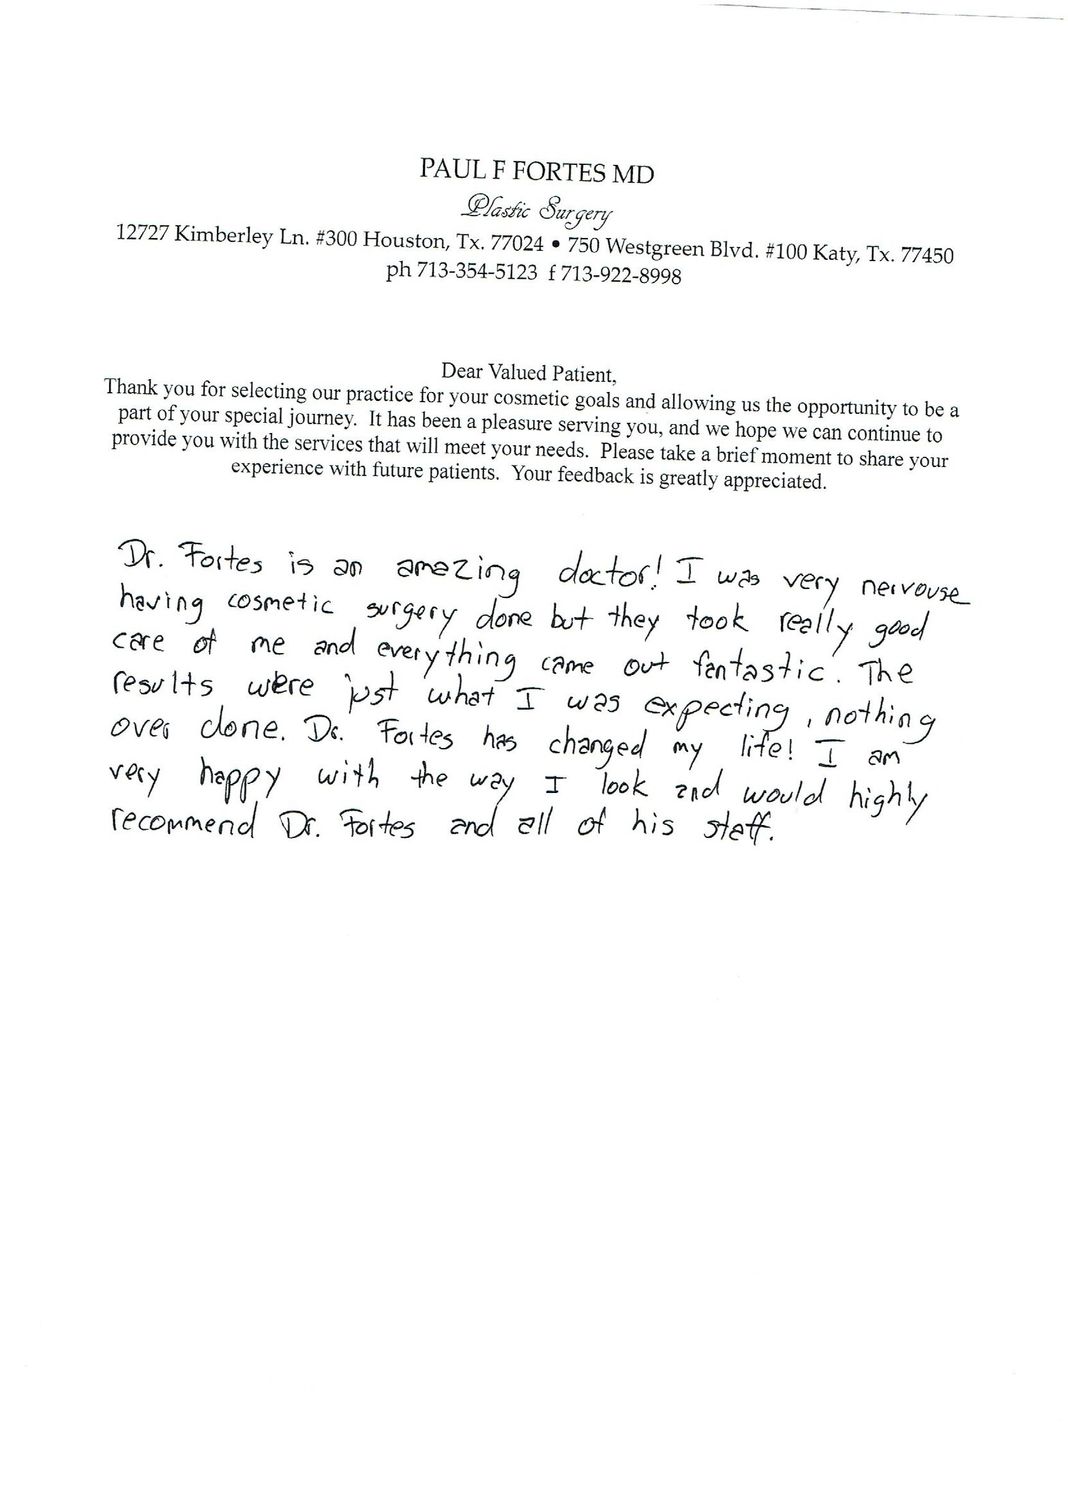 PAUL F FORTES MD
Plastic Surgery
12727 Kimberley Ln. #300 Houston, Tx. 77024 • 750 Westgreen Blvd. #100 Katy, Tx. 77450
ph 713-354-5123 f 713-922-8998
Dear Valued Patient,
Thank you for selecting our practice for your cosmetic goals and allowing us the opportunity to be a
part of your special journey. It has been a pleasure serving you, and we hope we can continue to
provide you with the services that will meet your needs. Please take a brief moment to share your
experience with future patients. Your feedback is greatly appreciated.
Dr. Fortes is an amazing doctor! I was very nervouse
having cosmetic surgery done but they took really good
care of me and everything came out fantastic. The
results were just what I was expecting, nothing
over done. Dr. Fortes has changed my life! I am
very happy with the way I look and would highly
recommend Dr. Fortes and all of his staff.